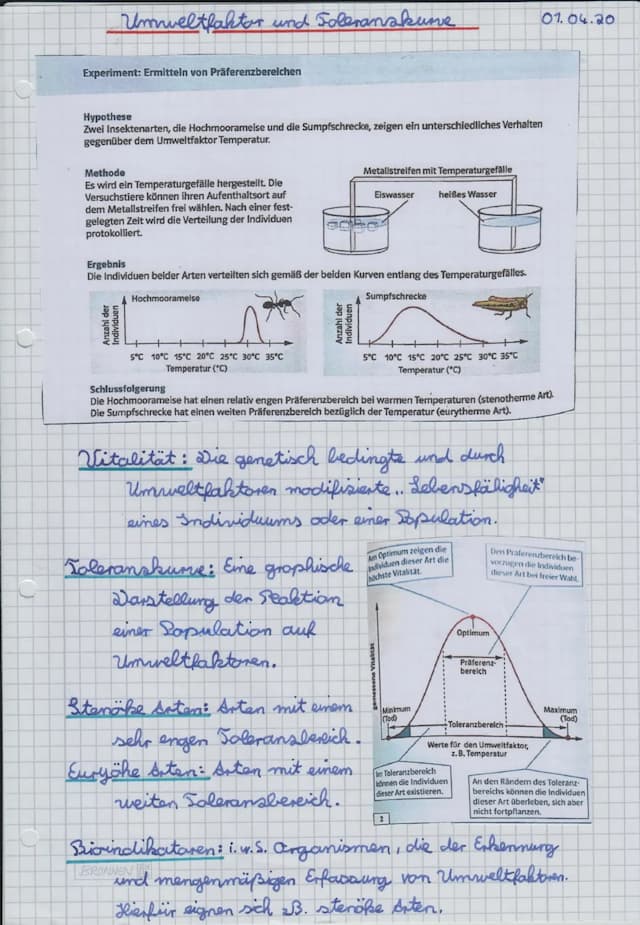 Umweltfaktor und Toleranzkurve 01.04.20
Experiment: Ermitteln von Präferenzbereichen
Hypothese
Zwei Insektenarten, die Hochmoorameise und die Sumpfschrecke, zeigen ein unterschiedliches Verhalten
gegenüber dem Umweltfaktor Temperatur.
Methode
Es wird ein Temperaturgefälle hergestellt. Die
Versuchstiere können ihren Aufenthaltsort auf
dem Metallstreifen frei wählen. Nach einer fest-
gelegten Zeit wird die Verteilung der Individuen
protokolliert.
Metallstreifen mit Temperaturgefälle
Eiswasser heißes Wasser
Ergebnis
Die Individuen beider Arten verteilten sich gemäß der beiden Kurven entlang des Temperaturgefälles.
Anzahl der
Individuen
Hochmoorameise
5°C 10°C 15°C 20°C 25°C 30°C 35°C
Temperatur (°C)
Anzahl der
Individuen
Sumpfschrecke
5°C 10°C 15°C 20°C 25°C 30°C 35°C
Temperatur (°C)
Schlussfolgerung
Die Hochmoorameise hat einen relativ engen Präferenzbereich bei warmen Temperaturen (stenotherme Art).
Die Sumpfschrecke hat einen weiten Präferenzbereich bezüglich der Temperatur (eurytherme Art).
Vitalität: Die genetisch bedingte und durch
Umweltfaktoren modifizierte „Lebensfähigkeit"
eines Individuums oder einer Population.
Toleranzkurve: Eine graphische
Darstellung der Reaktion
einer Population auf
Umweltfaktoren.
Stenöke Arten: Arten mit einem
sehr engen Toleranzbereich.
Euryöke Arten: Arten mit einem
weiten Toleranzbereich.
Am Optimum zeigen die
Individuen dieser Art die
höchste Vitalität.
Den Präferenzbereich be-
vorzugen die Individuen
dieser Art bei freier Wahl.
gemessene Vitalität
Optimum
Präferenz-
bereich
Minimum
(Tod)
Maximum
(Tod)
Toleranzbereich
Werte für den Umweltfaktor,
z.B. Temperatur
Im Toleranzbereich
können die Individuen
dieser Art existieren.
An den Rändern des Toleranz-
bereichs können die Individuen
dieser Art überleben, sich aber
nicht fortpflanzen.
Bioindikatoren: i.w.S. Organismen, die der Erkennung
und mengenmäßigen Erfassung von Umweltfaktoren.
Hierfür eignen sich zB. stenöke Arten.
BRUNNEN